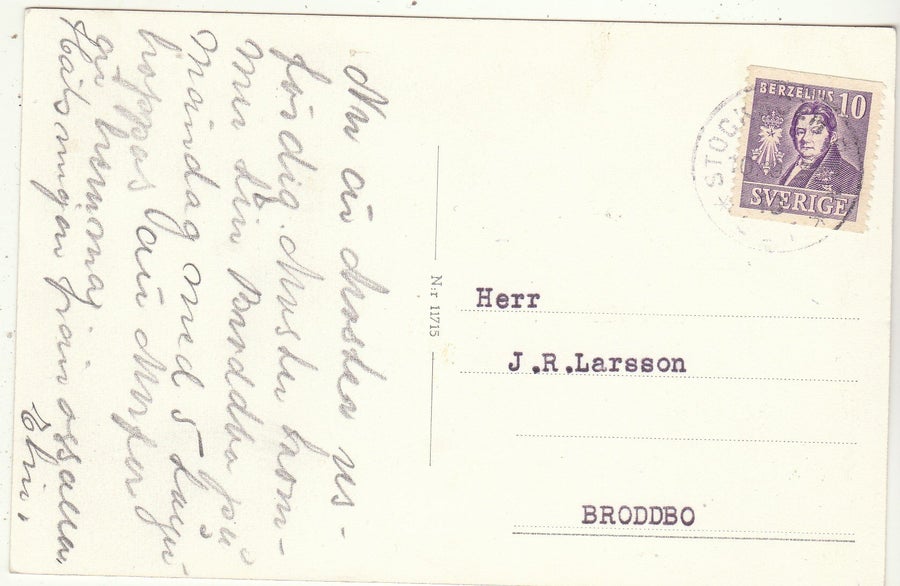 Nu är Moster us-
Moster kom-
mer till Broddbo på
Måndag med 5 tåget
hoppas
går hermonas
Hälsningar från ossalla
Elin.
Nr 11715
BERZELIUS 10
SVERIGE
STOCK
Herr
J.R.Larsson
BRODDBO